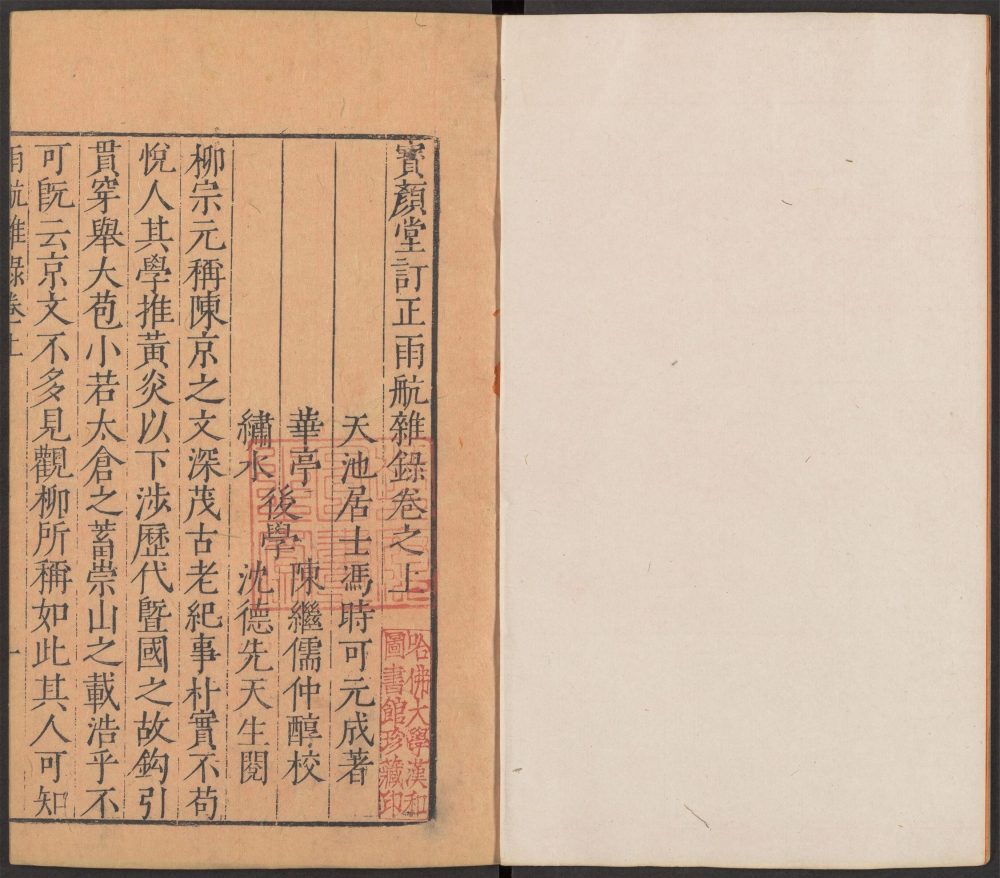 寳顔堂訂正雨航雜錄卷之上
天池居士馮時可元成著
華亭　陳繼儒仲醇校
後學
繡水　沈德先天生閱
柳宗元稱陳京之文深茂古老紀事朴實不苟
悅人其學推黃炎以下涉歷代曁國之故鈎引
貫穿舉大苞小若太倉之蓄崇山之載浩乎不
可旣云京文不多見觀柳所稱如此其人可知
雨航雜錄卷上　一
哈佛大學漢和
圖書館珍藏印